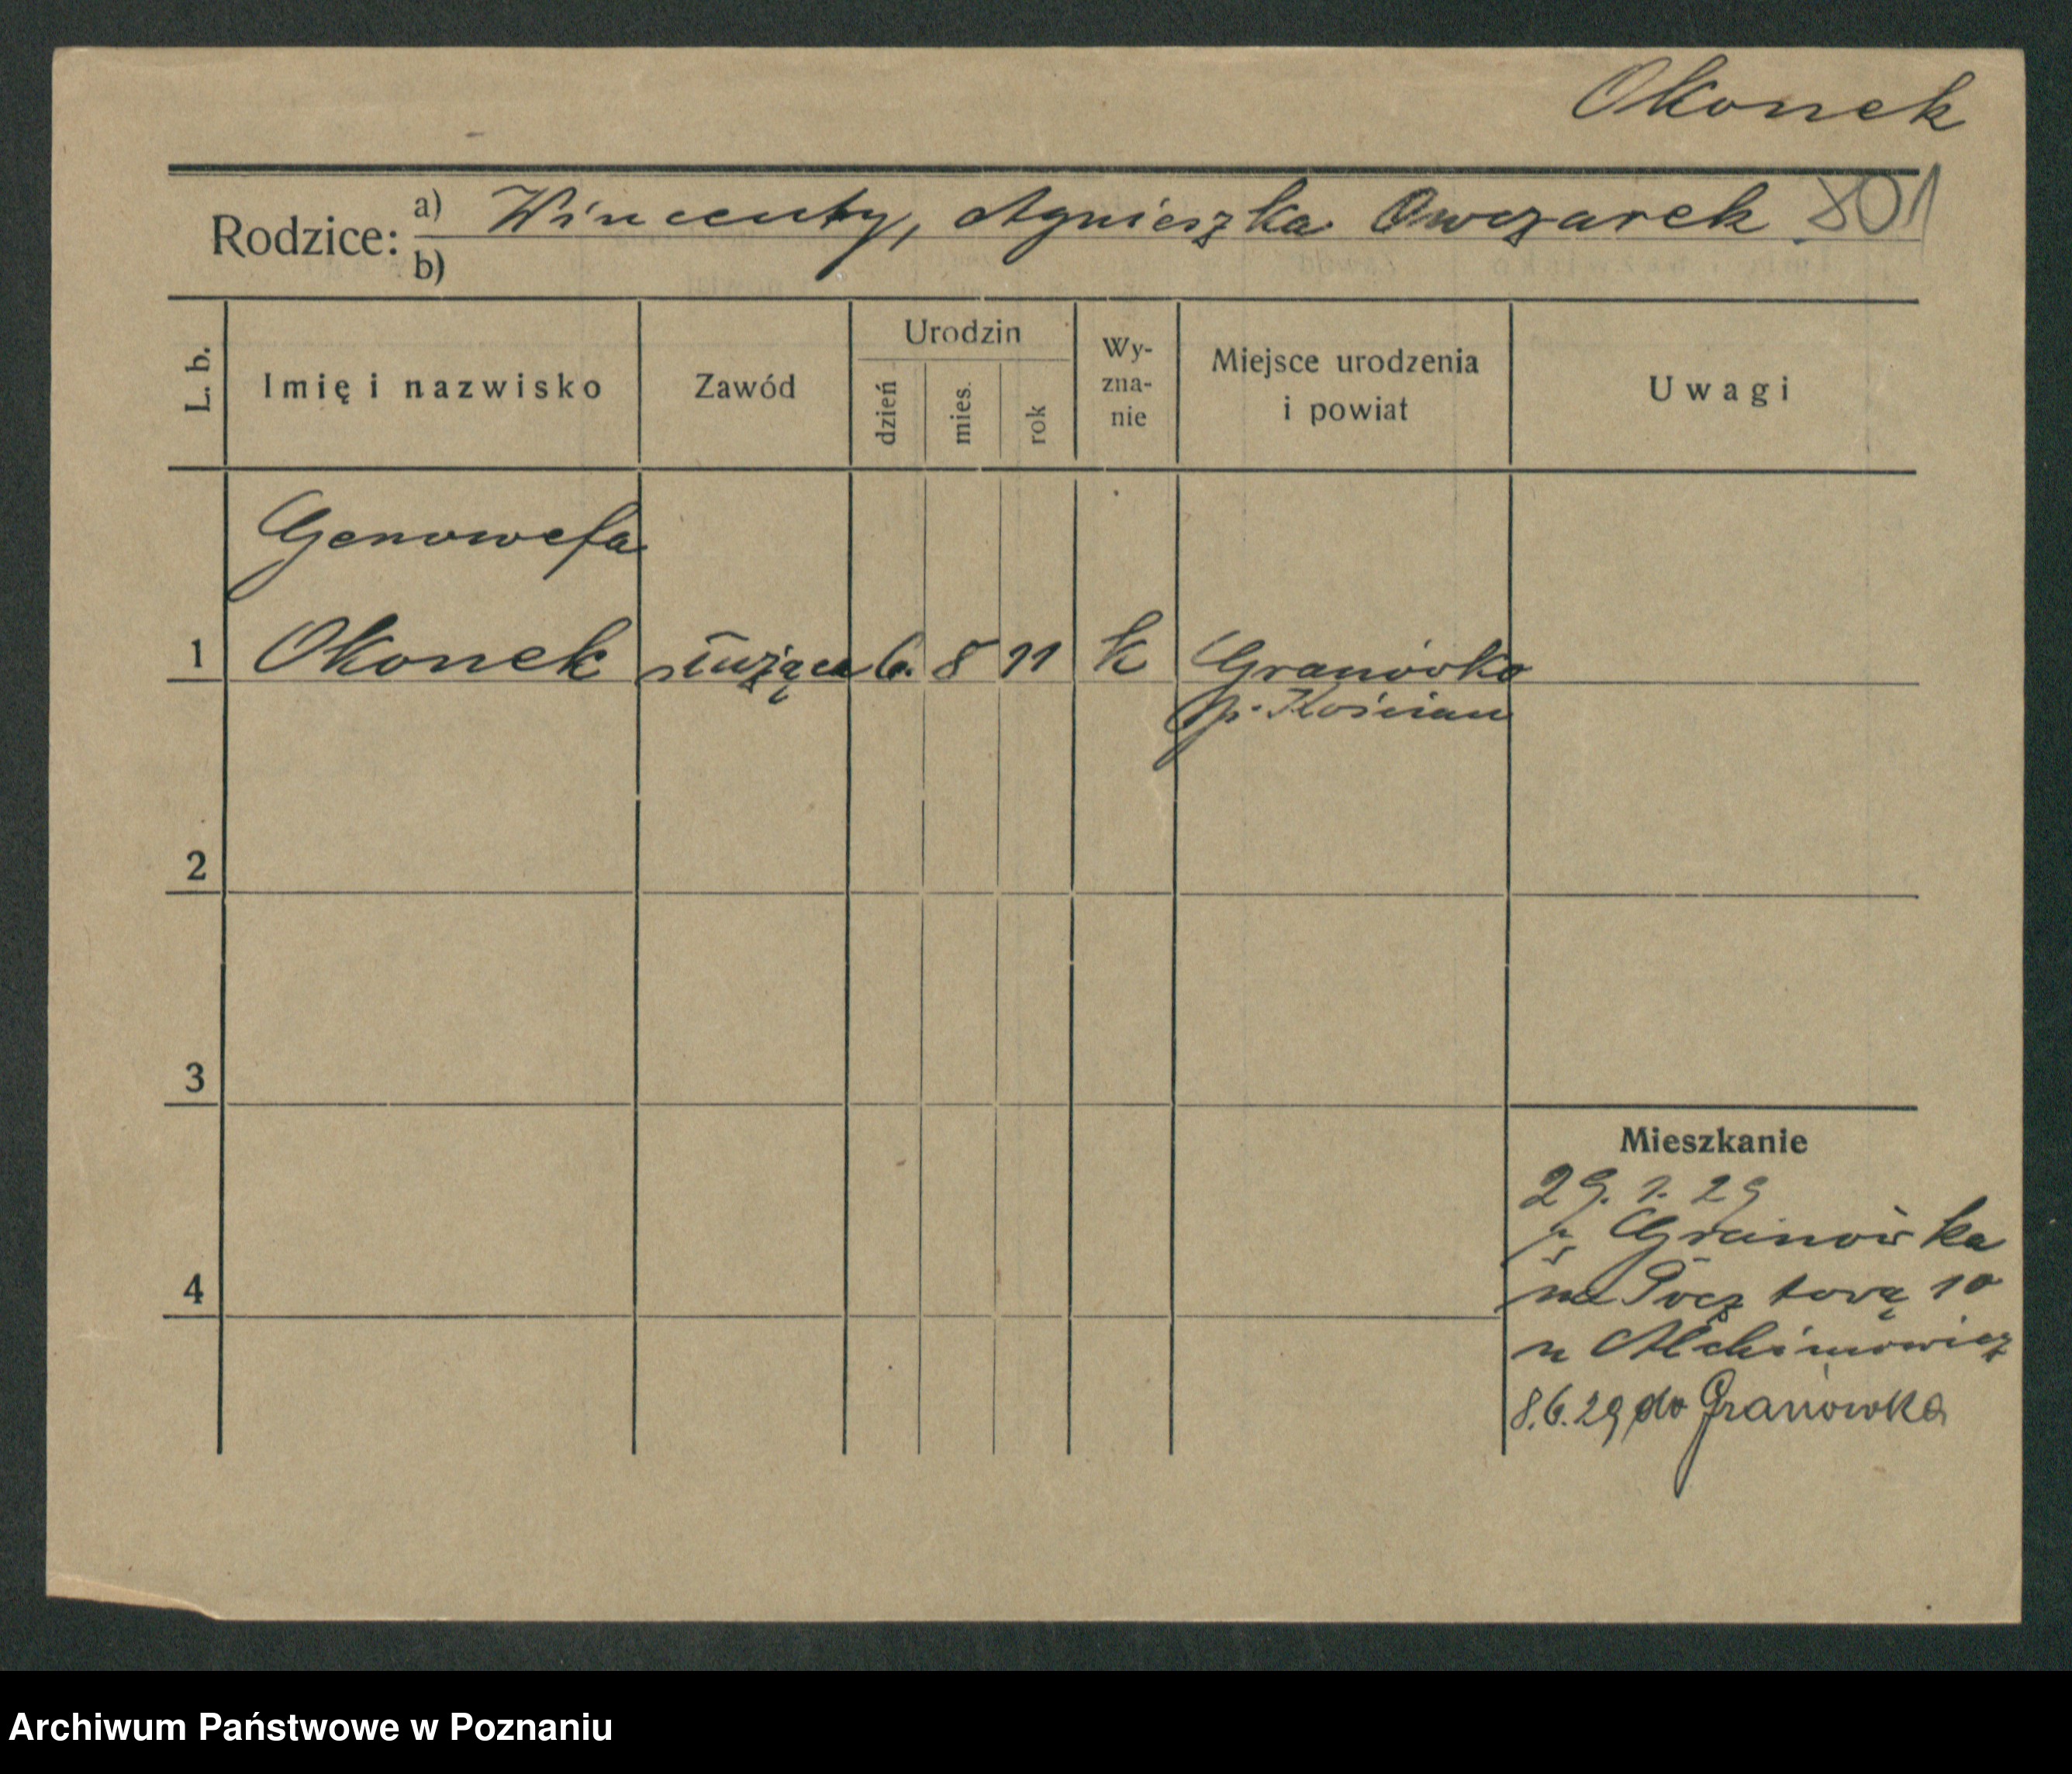 Okonek
801
Rodzice: a) Wincenty, Agnieszka Owczarek
b)
L. b. Imię i nazwisko Zawód Urodzin dzień mies. rok Wy-zna-nie Miejsce urodzenia i powiat Uwagi
Genowefa
1 Okonek służąca 6. 8 11 k Granówko
p. Kościan
2
3
Mieszkanie
29. 1. 29
Granówka
4 na Pocztową 10
u Alchimowicz
8.6.29 do Granówka
Archiwum Państwowe w Poznaniu